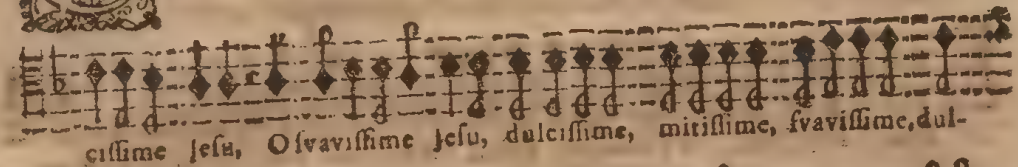 ciſſime Jeſu, O ſvaviſſime Jeſu, dulciſſime, mitiſſime, ſvaviſſime, dul-